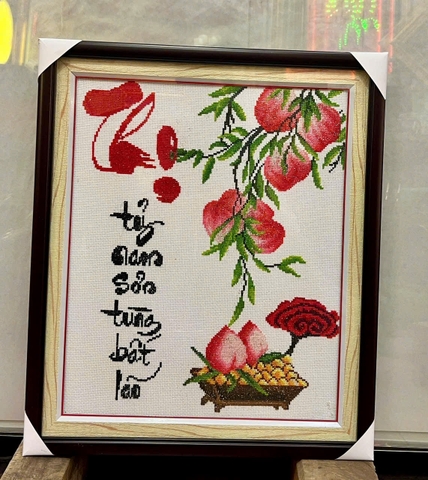 Thọ
tỷ
nam
sơn
tùng
bất
lão